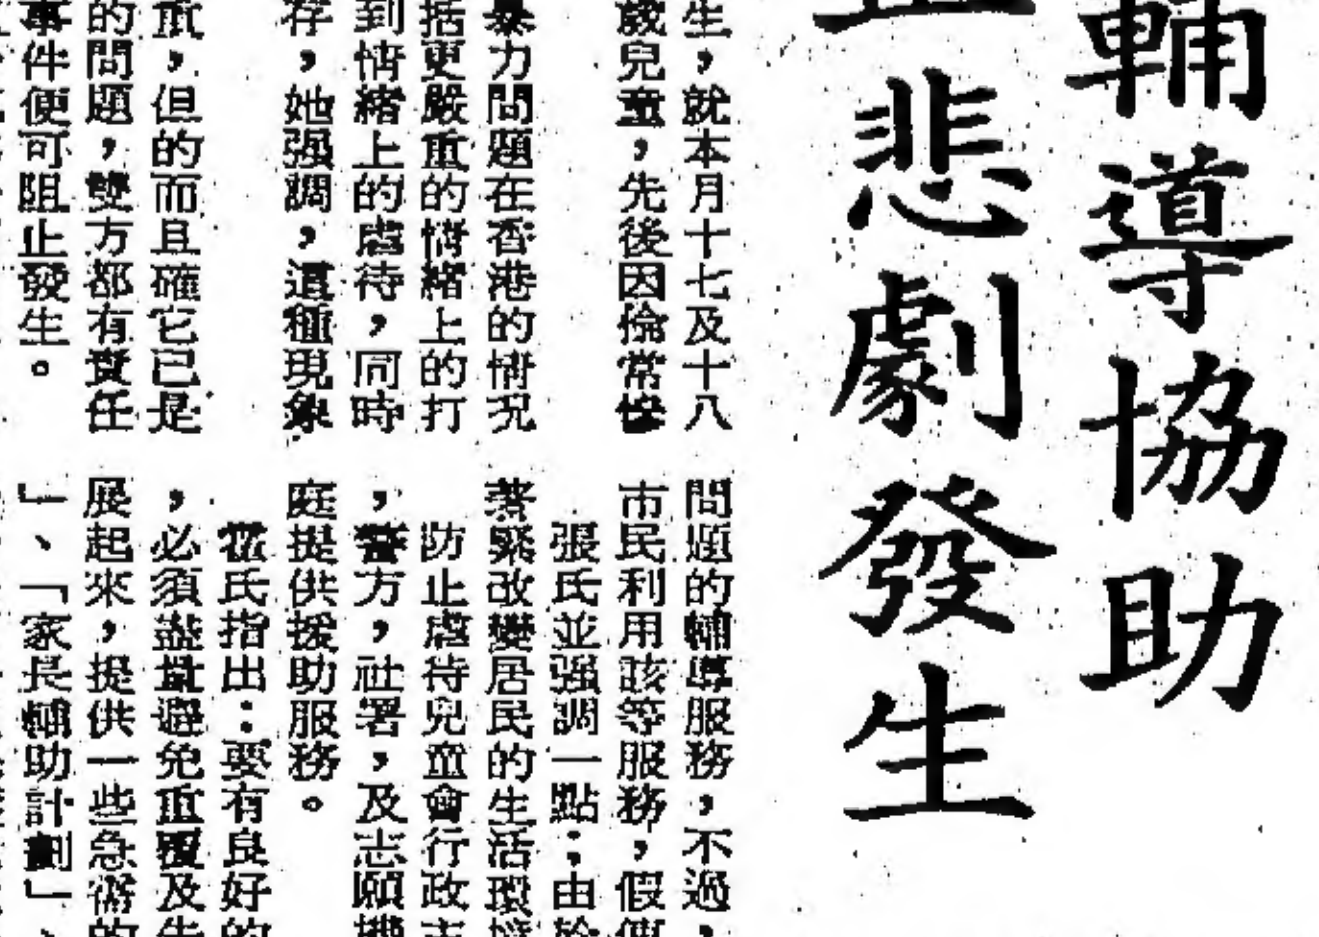 輔導協助
悲劇發生
生，就本月十七及十八
歲兒童，先後因倫常慘
暴力問題在香港的情况
括更嚴重的情緒上的打
到情緒上的虐待，同時
存，她强調，這種現象
重，但的而且確它已是
的問題，雙方都有責任
事件便可阻止發生。
問題的輔導服務，不過，
市民利用該等服務，假使
張氏並强調一點：由於
著緊改變居民的生活環境
防止虐待兒童會行政主
，警方，社署，及志願機
庭提供援助服務。
霍氏指出：要有良好的
，必須盡量避免重覆及
展起來，提供一些急需的
」、「家長輔助計劃」、